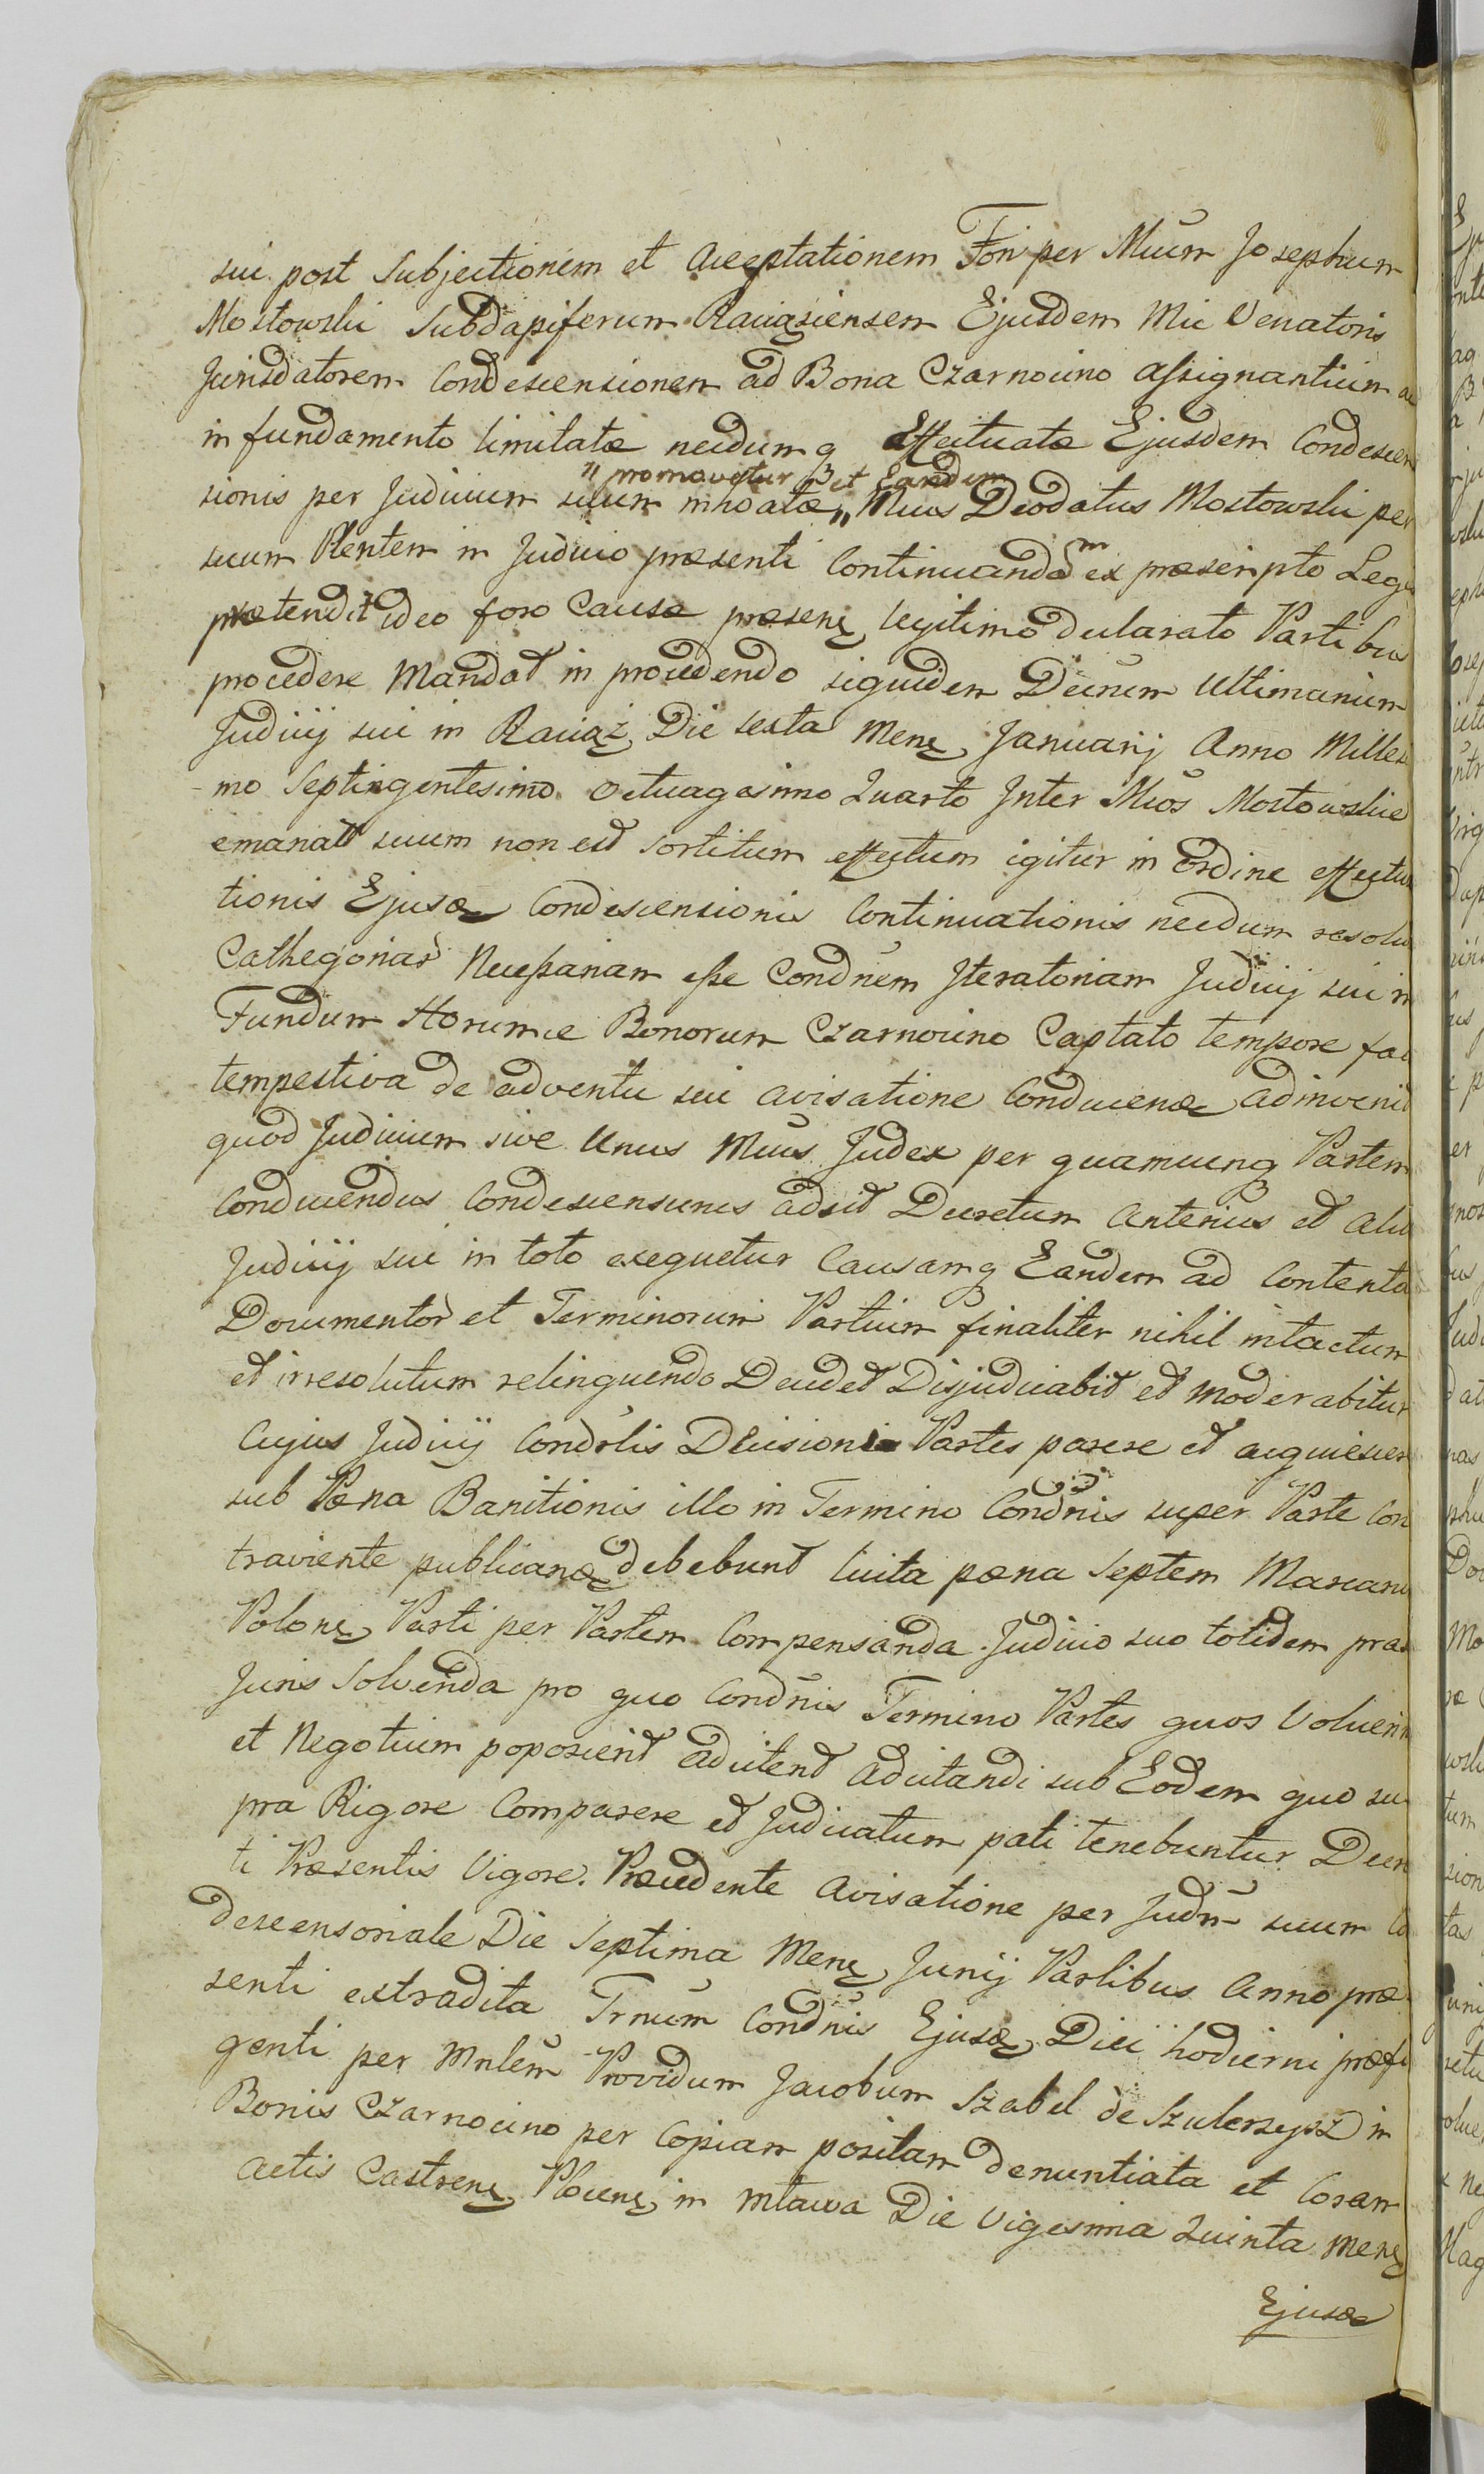 sui post Subjectionem et Acceptationem Fori per Mūm Josephum
Mostowski Subdapiferum Raviąziensem Ejusdem Mīci Venatoris
Jurisdatorem Condescensionem ad Bona Czarnocino assignantium ac
in fundamento limitatæ necdumq Effectuatæ Ejusdem Condescen
" promovetur et Eandem
sionis per Judicium suum inhoatæ " Mīcus Deodatus Mostowski per
suum Plentem in Judicio præsenti Continuandam ex præscripto Legis
prætendit ideo foro Causæ præsenę legitimo declarato Partibus
procedere Mandat in procedendo siquidem Dēcrum Ultimarium
Judicij sui in Raciąż Die sexta Menę Januarij Anno Milles
-mo Septingentesimo Octuagesimo Quarto Inter Mīcos Mostowskie
emanat suum non est sortitum effectum igitur in Ordine effectua
tionis Ejusdę Condescensionis Continuationis necdum resolu
Cathegoriar Necessariam esse Condnem Iteratoriam Judicij sui in
Fundum Horumce Bonorum Czarnocino Captato tempore fac
tempestiva de adventu sui avisatione Conducendę adinvenit
quod Judicium sive Unus Mīcus Judex per quamcunq Partem
Conducendus Condescensurus adsit Decretum Anterius et aliu
Judicij sui in toto exequetur Causamq Eandem ad Contenta
Documentor et Terminorum Partium finaliter nihil intactum
et irresolutum relinquendo Decidet Disjudicabit et Moderabitur
Cujus Judicij Condrlis Decisioni Partes parere et acquiescer
sub Pœna Banitionis illo in Termino Condnis super Parte Con
traveniente publicanda debebunt luita pœna Septem Marcaru
Polonę Parti per Partem Compensanda Judicio suo totidem præ
Juris Solvenda pro quo Condnis Termino Partes quos Voluerin
et Negotium poposcerit adcitent adcitandi sub Eodem quo su
pra Rigore Comparere et Judicatum pati tenebuntur Decre
ti Præsentis Vigore. Præcedente avisatione per Judm suum Co
descensoriale Die Septima Menę Junij Partibus Anno præ
senti extradita Trnum Condnis Ejusdę Diei hodierni præfi
genti per Mnlem Providum Jacobum Szabel de Szulerzysz in
Bonis Czarnocino per Copiam positam denuntiata et Coram
Actis Castrenę Plocenę in Mława Die Vigesima Quinta Menę
Ejusdę